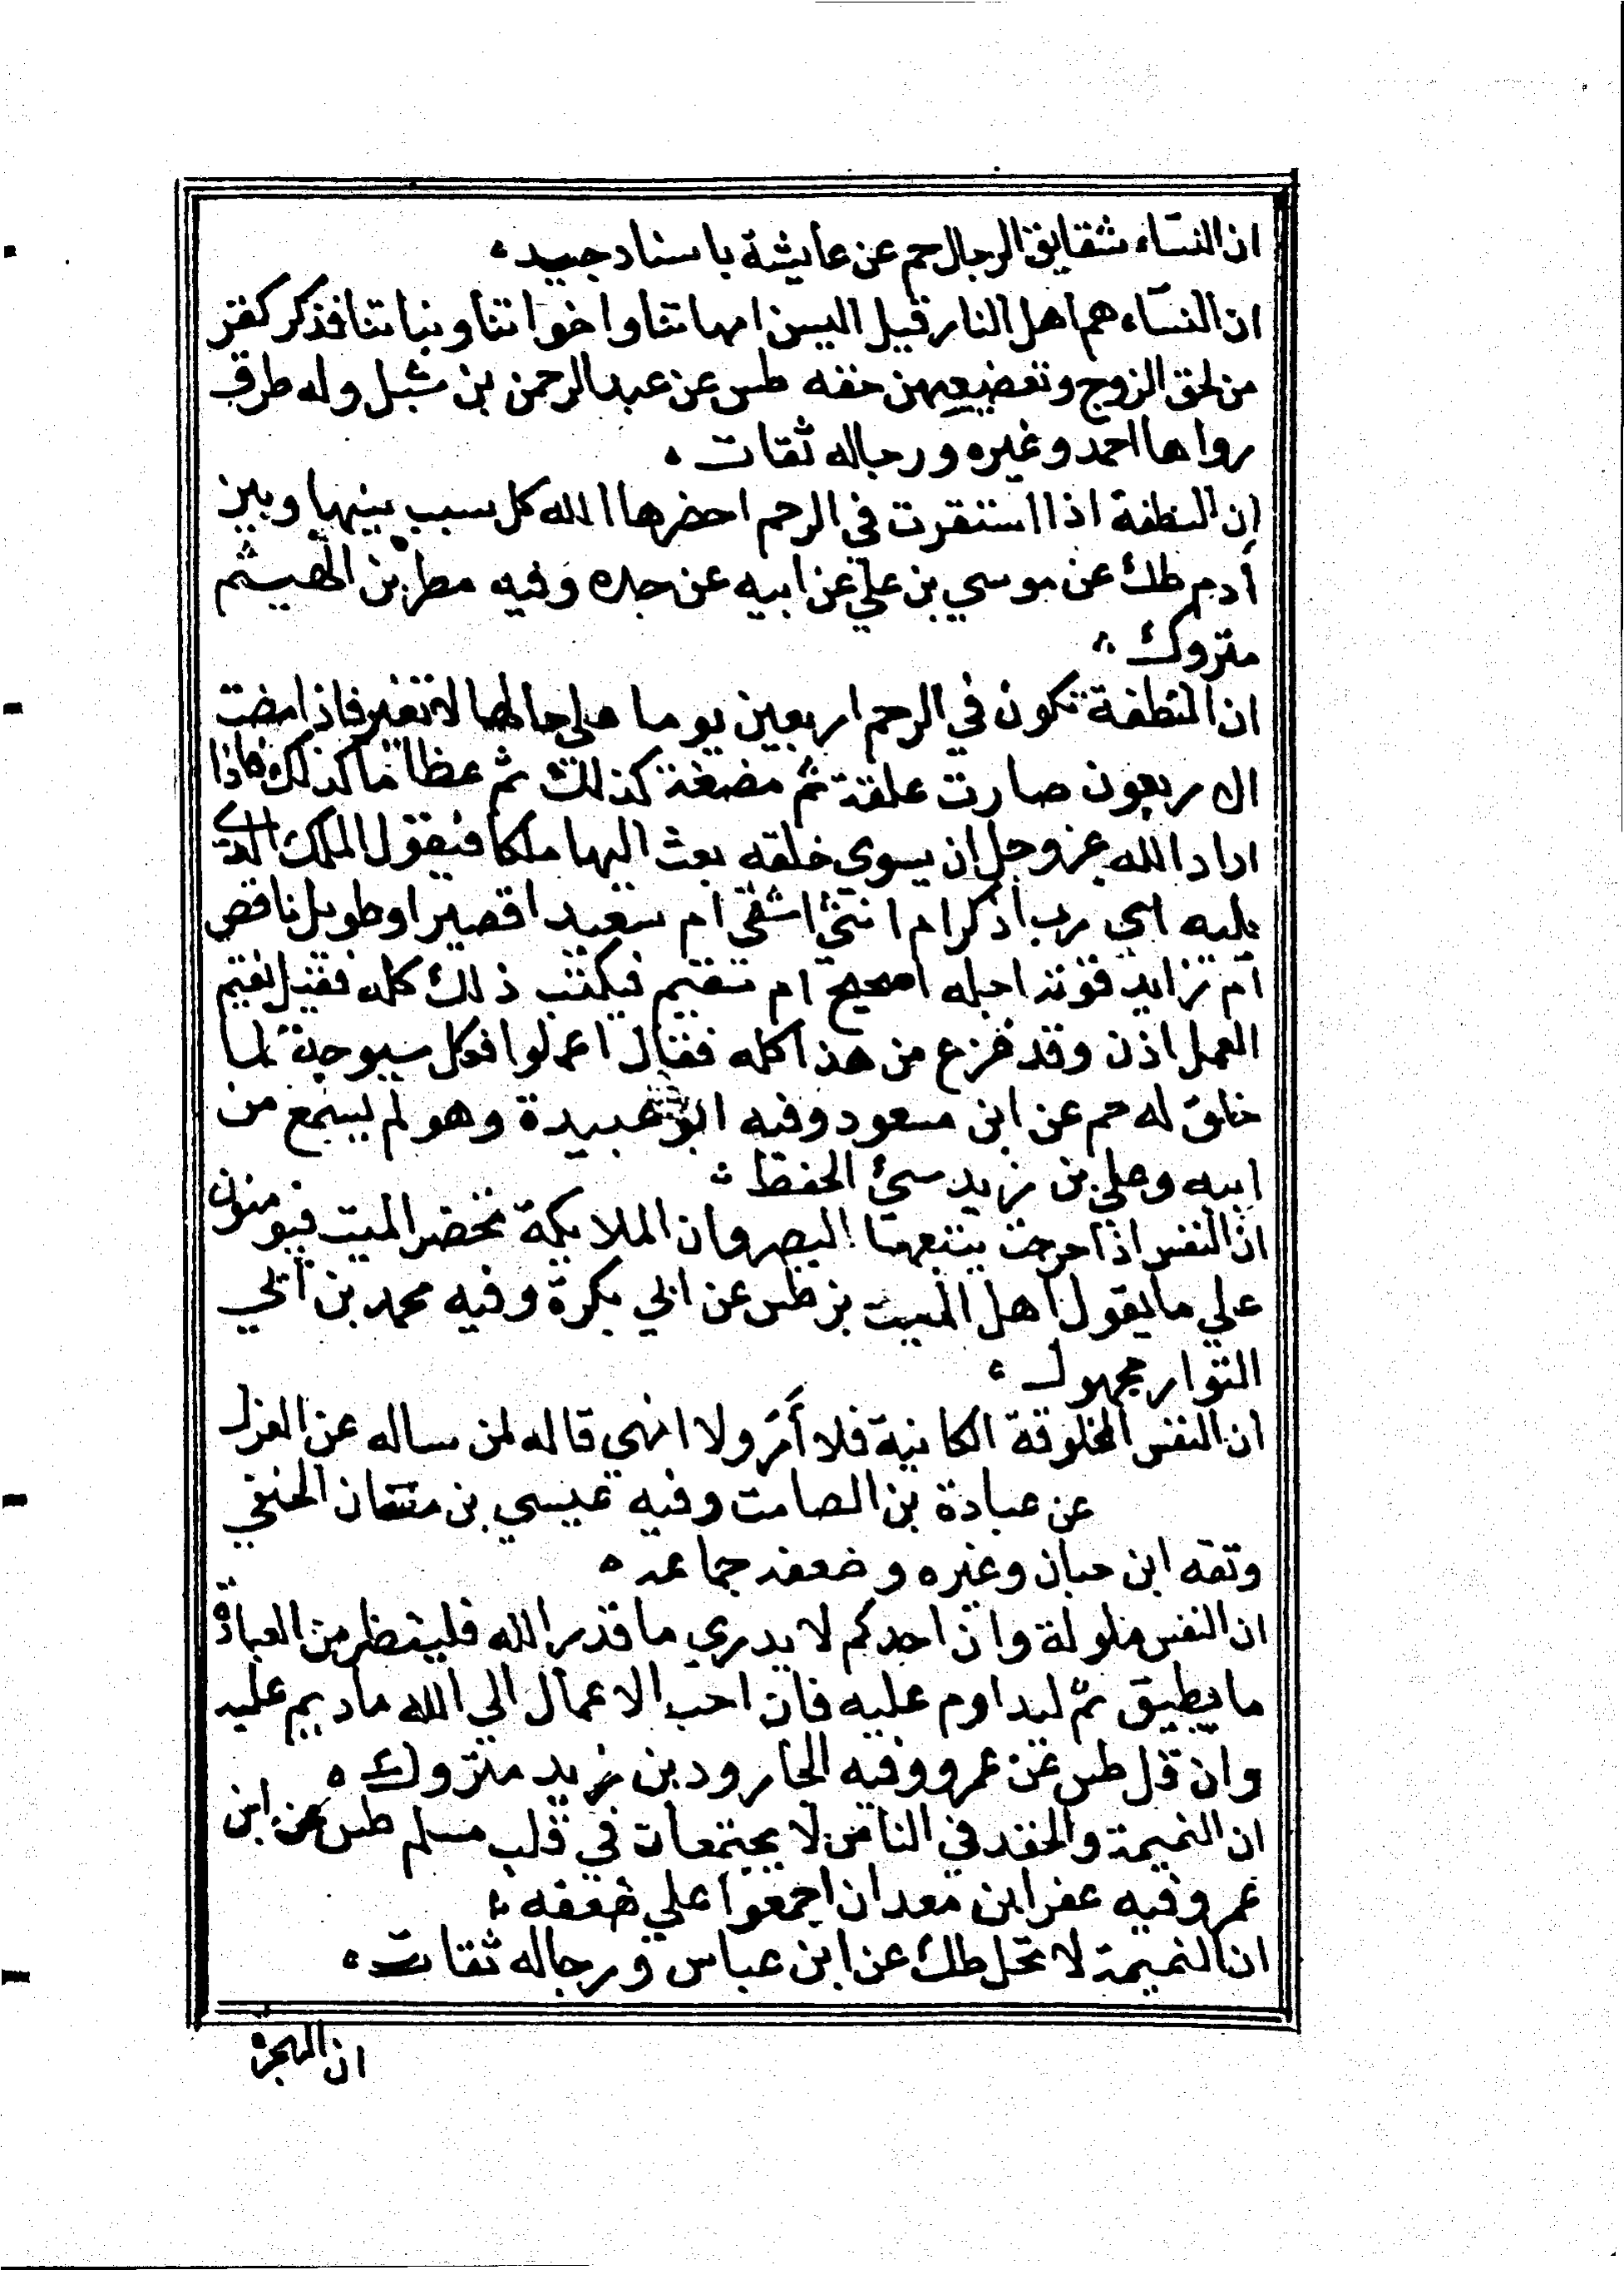 ان النسآء شقايق الرجال حم عن عايشة باسناد جيد
ان النسآء هم اهل النار قيل اليسن امهاتنا واخواتنا وبناتنا فذكر كفر
من لحق الزوج وتضييعهن حقه طس عن عبد الرحمن بن شبل وله طرق
رواها احمد وغيره ورجاله ثقات
ان النطفة اذا استقرت في الرحم احضرها الله كل سبب بينها وبين
آدم طك عن موسي بن علي عن ابيه عن جده وفيه مطر بن الهيثم
متروك
ان النطفة تكون في الرحم اربعين يوما علي حالها لا تتغير فاذا مضت
الاربعون صارت علقة ثم مضغة كذلك ثم عظاما كذلك فاذا
اراد الله عز وجل ان يسوي خلقه بعث اليها ملكا فيقول الملك الذي
يليه اي رب اذكر ام انثي اشقي ام سعيد اقصير او طويل ناقص
ام زايد قوته اجله اصحيح ام سقيم فيكتب ذلك كله فقيل ففيم
العمل اذن وقد فزع من هذا كله فقال اعملوا فكل سيوجه لما
خلق له حم عن ابن مسعود وفيه ابو عبيدة وهو لم يسمع من
ابيه وعلي بن زيد سئ الحفظ
ان النفس اذا خرجت يتبعها البصر وان الملايكة تحضر الميت فيومنون
علي ما يقول اهل الميت بز طس عن ابي بكرة وفيه محمد بن ابي
النوار مجهول
ان النفس المخلوقة الكاينة فلا آمر ولا انهي قاله لمن ساله عن العزل
عن عبادة بن الصامت وفيه عيسي بن سنان الحنفي
وثقه ابن حبان وغيره وضعفه جماعه
ان النفس ملولة وان احدكم لا يدري ما قدر الله فلينظر من العبادة
ما يطيق ثم ليداوم عليه فان احب الاعمال الي الله ما ديم عليه
وان قل طس عن عمر وفيه الجارود بن زيد متروك
ان النميمة والحقد في النار لا يجتمعان في قلب مسلم طس عن ابن
عمر وفيه عفر ابن معدان اجمعوا علي ضعفه
ان النميمة لا تحل طك عن ابن عباس ورجاله ثقات
ان الهجرة